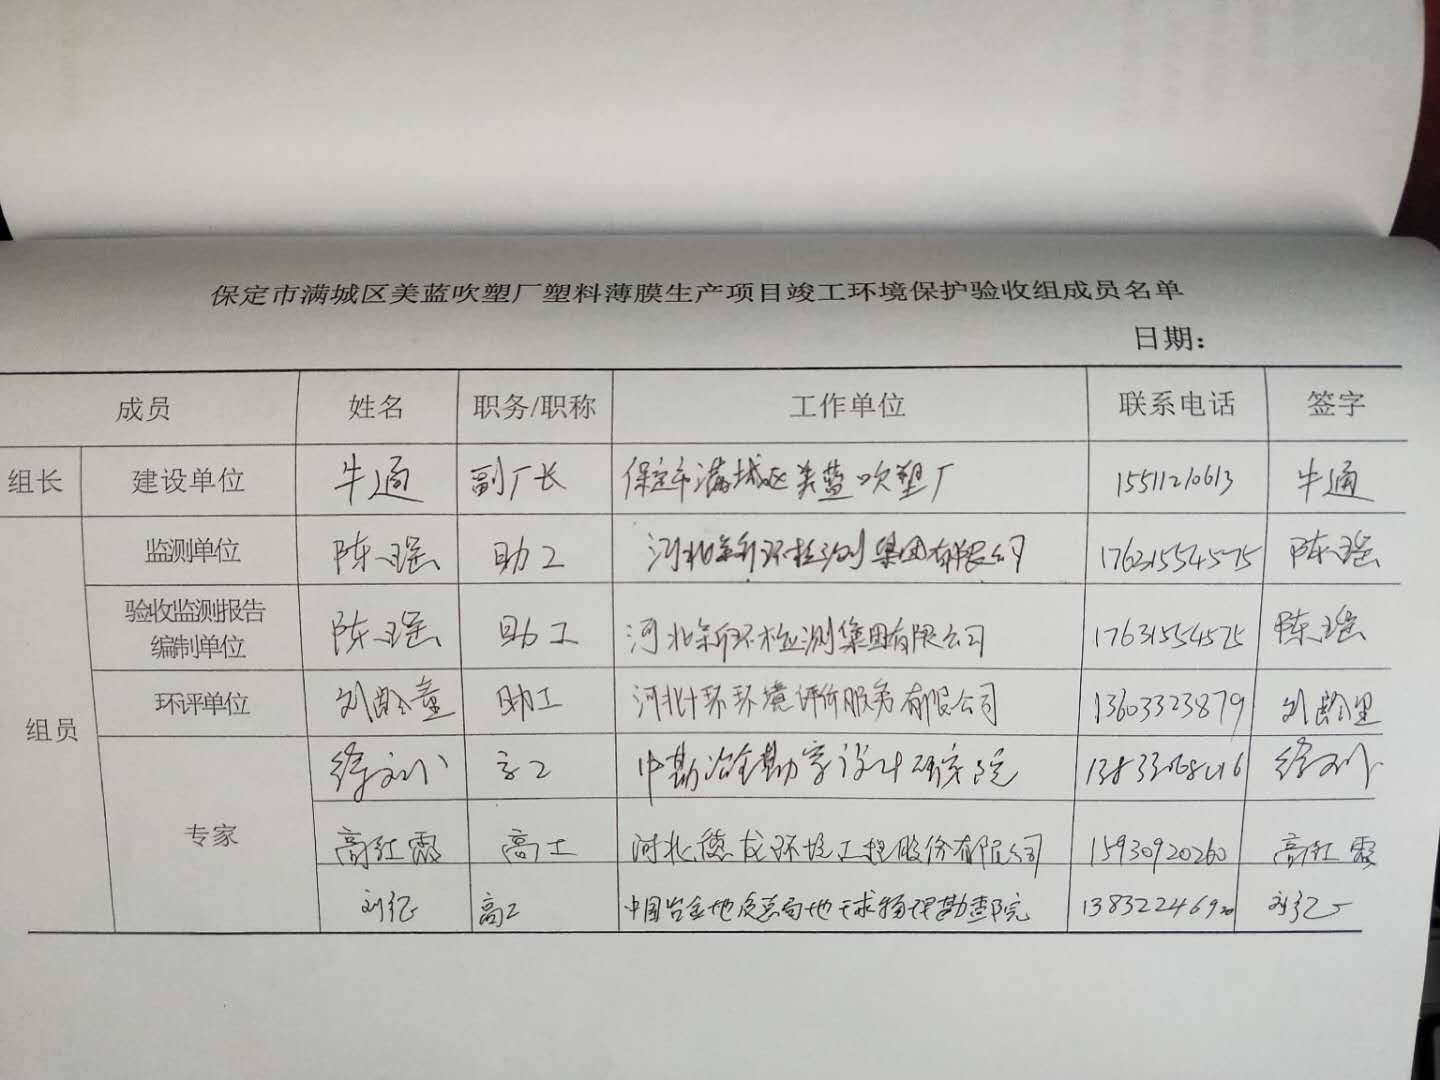 保定市满城区美蓝吹塑厂塑料薄膜生产项目竣工环境保护验收组成员名单
日期：
成员 姓名 职务/职称 工作单位 联系电话 签字
组长 建设单位 牛通 副厂长 保定市满城区美蓝吹塑厂 15511210613 牛通
组员
监测单位 陈瑶 助工 河北新环检测集团有限公司 17631554575 陈瑶
验收监测报告
编制单位 陈瑶 助工 河北新环检测集团有限公司 17631554575 陈瑶
环评单位 助工 河北十环环境评价服务有限公司 13603323879
专家
高工 中勘冶金勘察设计研究院
高红霞 高工 河北德龙环境工程股份有限公司 15930920260 高红霞
刘征 高工 中国冶金地质总局地球物理勘查院 13832246920 刘征